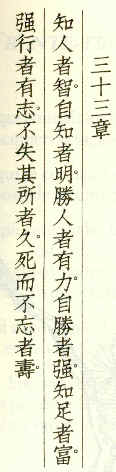 三十三章
知人者智。自知者明。勝人者有力。自勝者强。知足者富。
强行者有志。不失其所者久。死而不忘者壽。